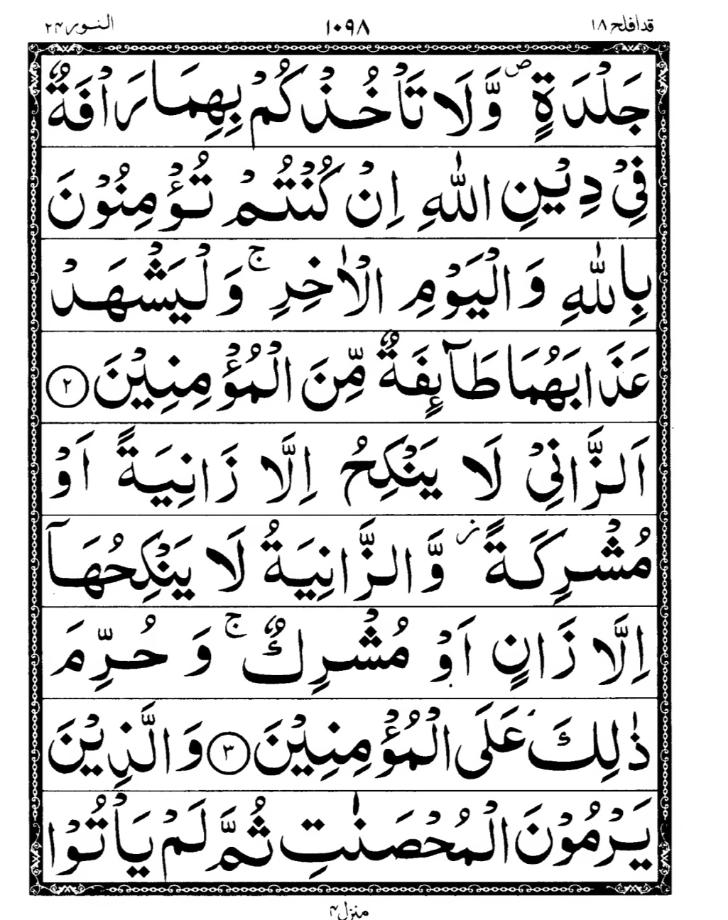 قدافلح ۱۸ ۱۰۹۸ النور ۲۴
جَلْدَةٍ ۪ وَّلَا تَاْخُذْكُمْ بِهِمَا رَاْفَةٌ
فِيْ دِيْنِ اللّٰهِ اِنْ كُنْتُمْ تُؤْمِنُوْنَ
بِاللّٰهِ وَالْيَوْمِ الْاٰخِرِ ۚ وَلْيَشْهَدْ
عَذَابَهُمَا طَآىِٕفَةٌ مِّنَ الْمُؤْمِنِيْنَ ﴿۲﴾
اَلزَّانِيْ لَا يَنْكِحُ اِلَّا زَانِيَةً اَوْ
مُشْرِكَةً ؗ وَّالزَّانِيَةُ لَا يَنْكِحُهَاۤ
اِلَّا زَانٍ اَوْ مُشْرِكٌ ۚ وَ حُرِّمَ
ذٰلِكَ عَلَى الْمُؤْمِنِيْنَ ﴿۳﴾ وَالَّذِيْنَ
يَرْمُوْنَ الْمُحْصَنٰتِ ثُمَّ لَمْ يَاْتُوْا
منزل ۴